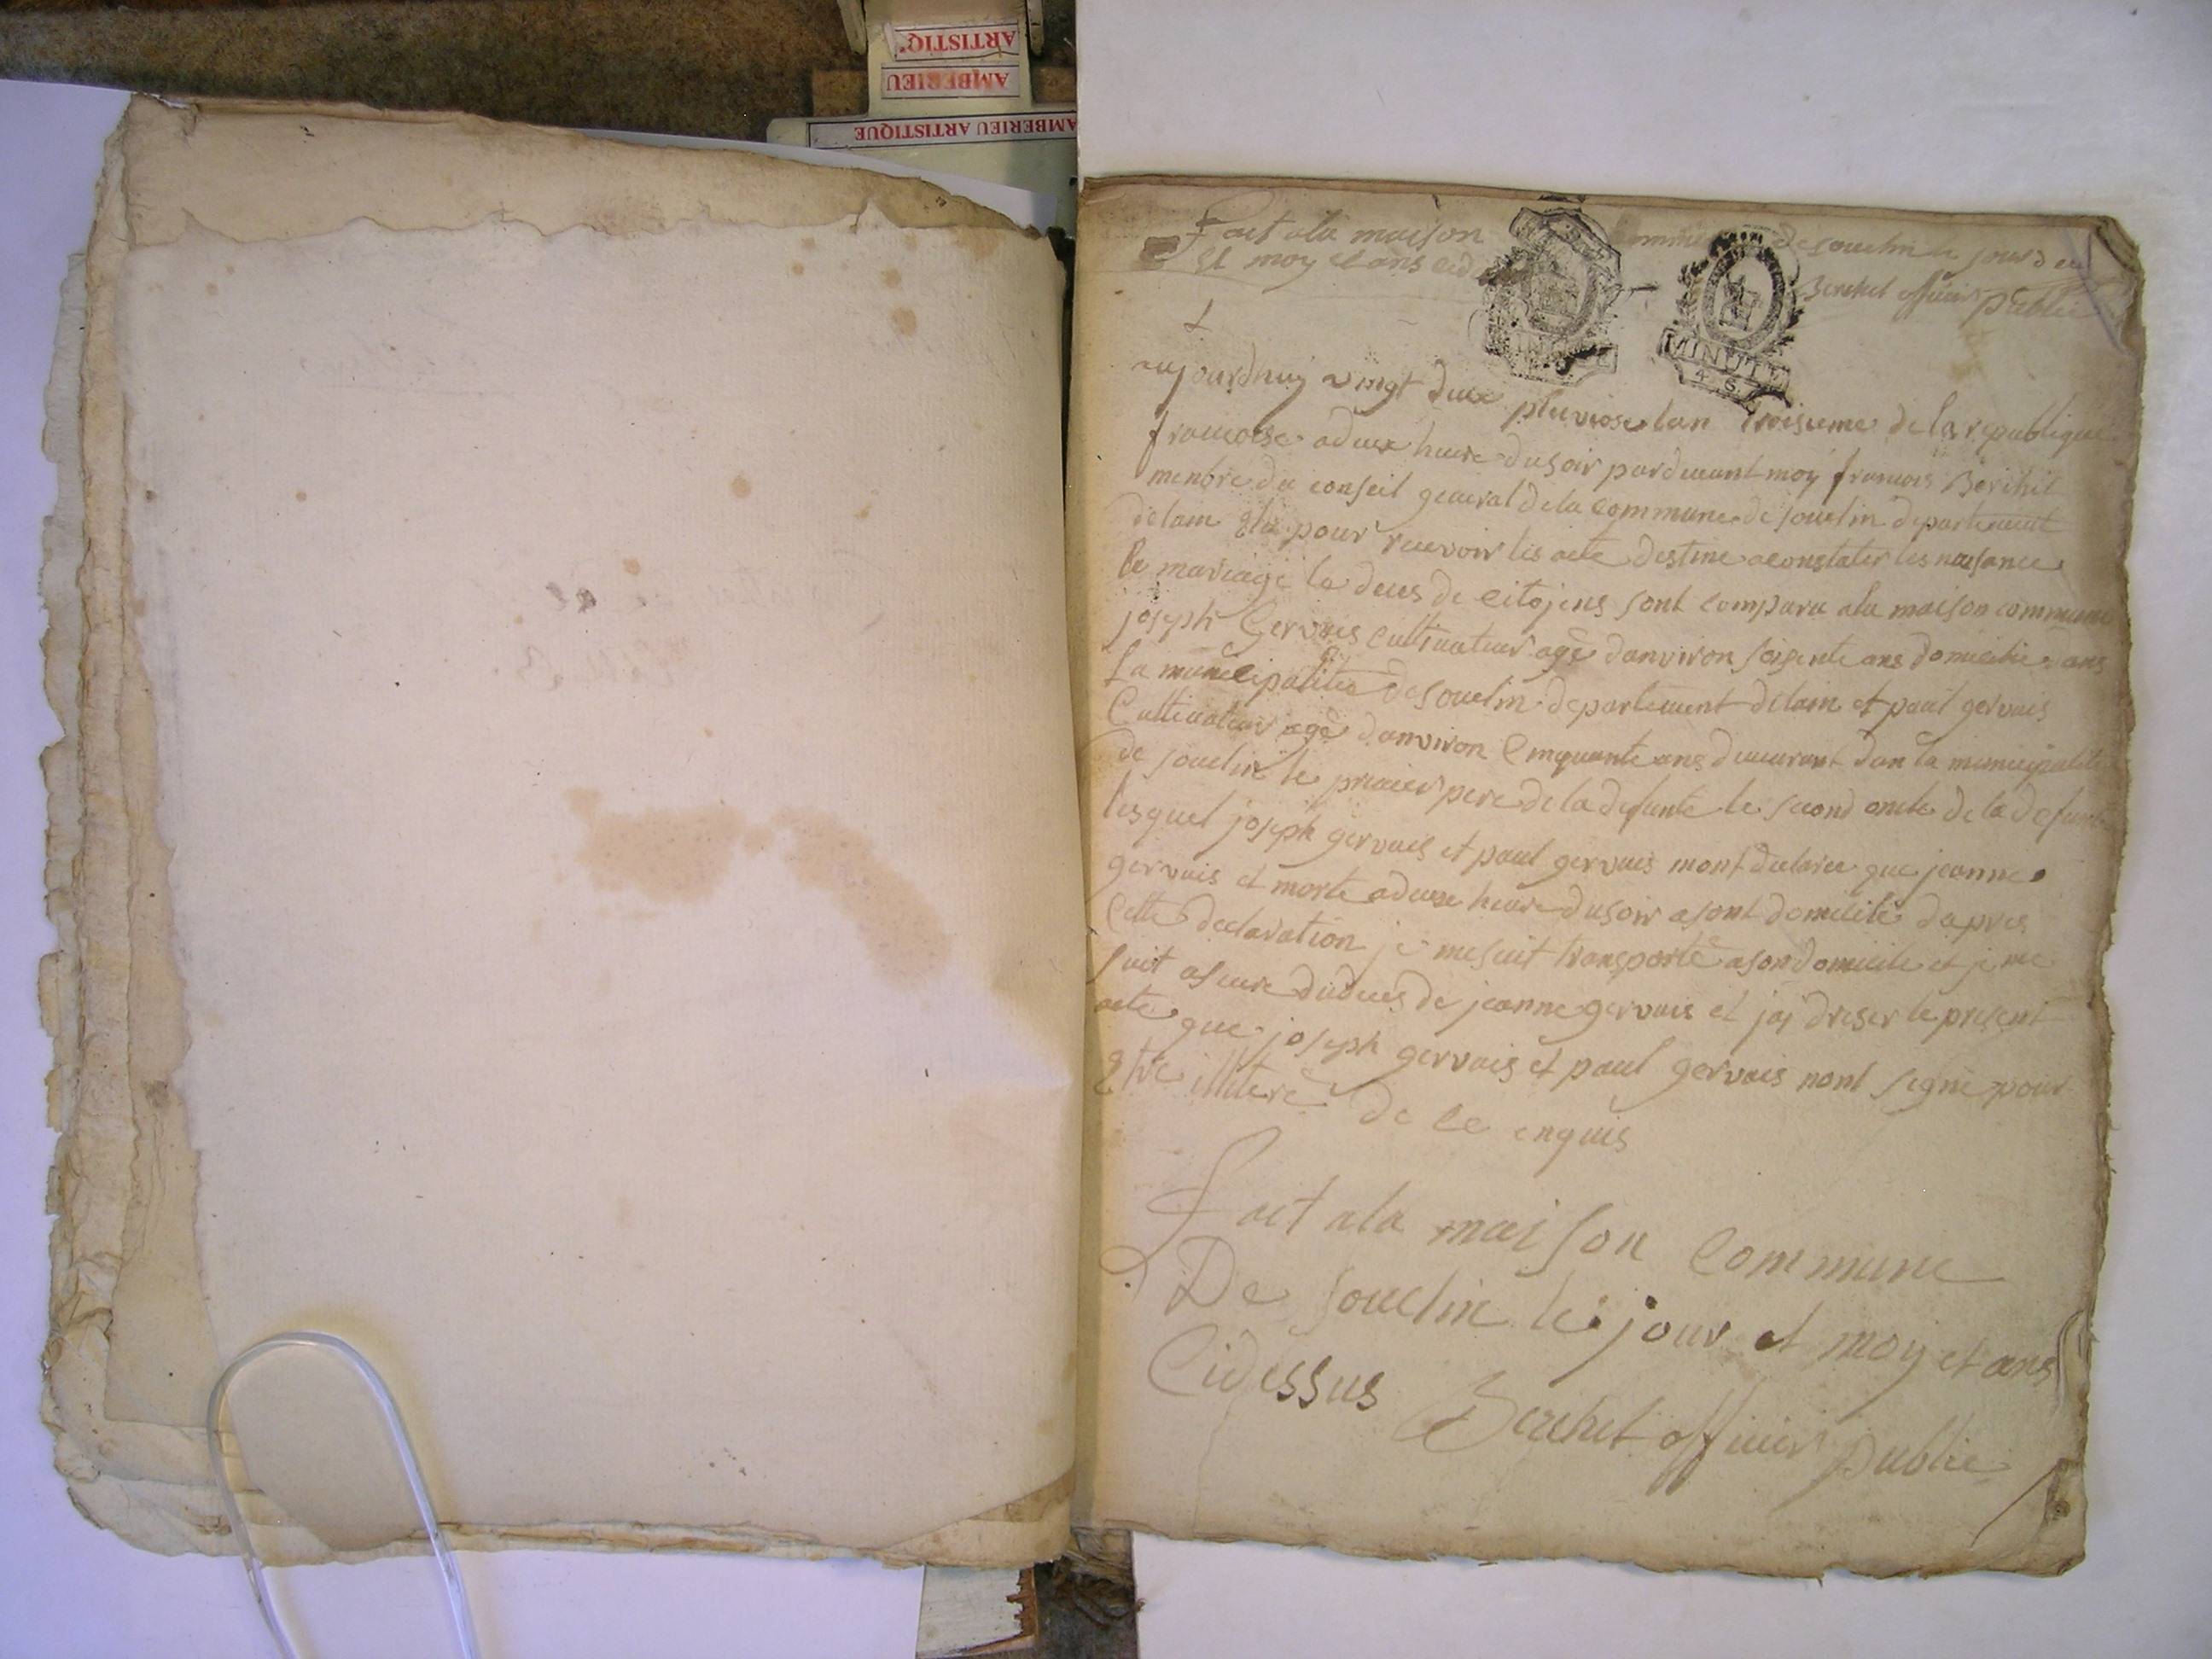 ARTISTIQ'
AMBERIEU
AMBERIEU ARTISTIQUE
fait ala maison commune de souclin le jours
et moy et ans cid
Berchet officier public
MINUTE
MINUTE
4 S.
aujourdhuy vingt deux pluviose lan troisieme de la republique
francoise a deux heure du soir pardevant moy francois Berchet
menbre du conseil general de la commune de souclin departement
de lain elu pour recevoir les acte destine a constater les naisance
le mariage la deces de citojens sont comparu ala maison commune
joseph Gervais cultivateur agé danviron soisente ans domicilie dans
la municipalitée de souclin departement de lain et paul gervais
Cultivateur agé danviron cinquante ans demeurant dan la municipalite
de souclin le premier pere de la defunte le second oncle de la defunte
lesquel joseph gervais et paul gervais mont declaree que jeanne
gervais et morte a deuxe heure du soir a sont domicile dapres
cette declaration je me suit transporte a son domicile et je me
suit assure du deces de jeanne gervais et jaj dreser le present
acte que joseph gervais et paul gervais nont signé pour
etre illiteré de ce enquis
fait ala maison commune
De souclin le jour et moy et ans
Cidessus Berchet officier public